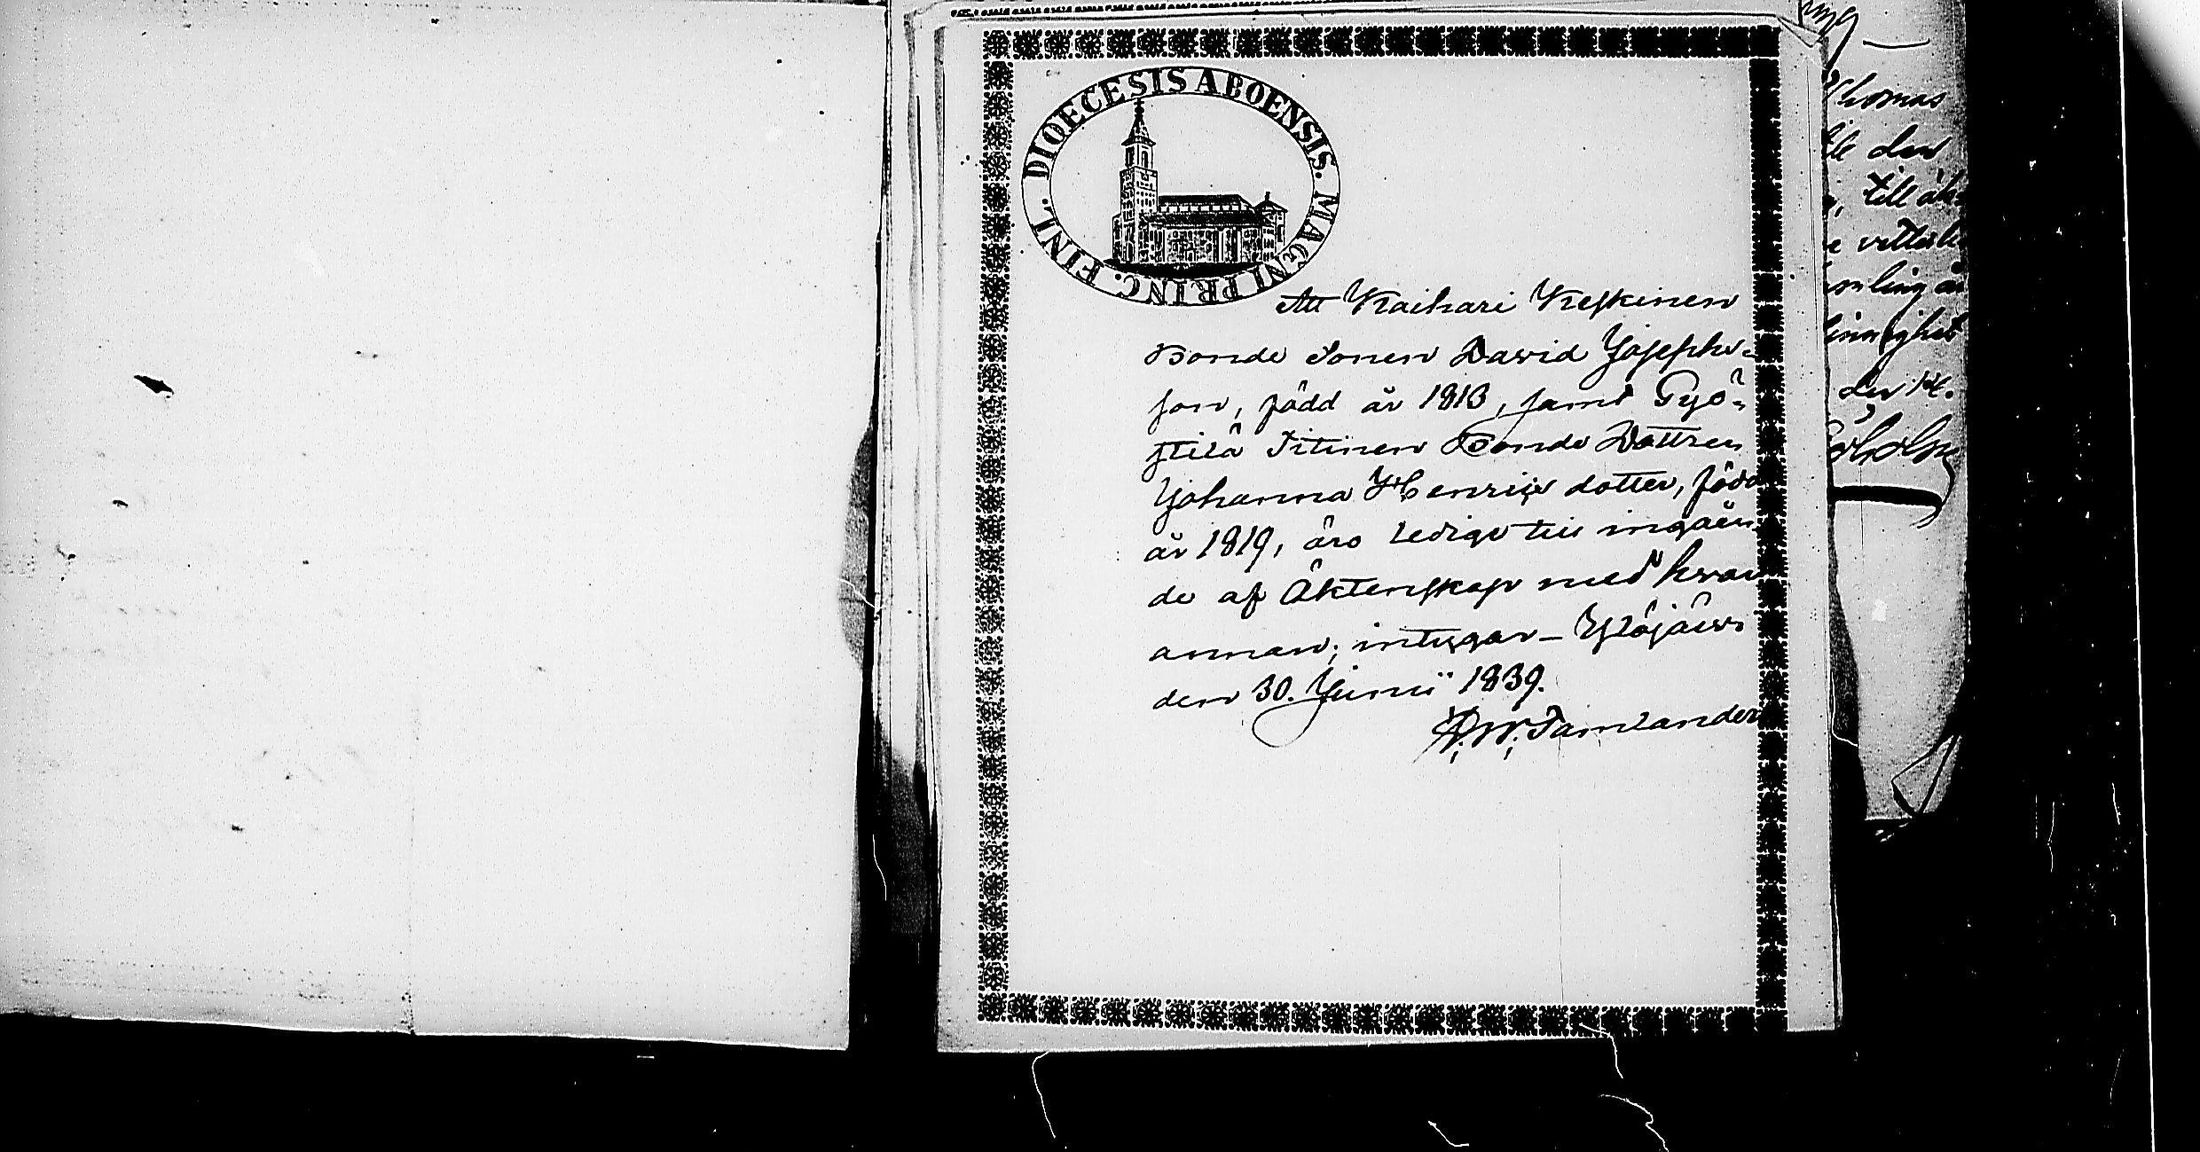 DIOECESIS ABOENSIS. MAGNI PRINC. FINL.
Att Kaihari Keskinen
Bonde Sonen David Josephs-
son, född år 1813, samt Pyö-
Sitinen Bonde Dottren
Johanna Henrix dotter, född
år 1819, äro ledige till ingåen
de af Äktenskap med hvar
annan; intygar _ Ylöjärvi
den 30. Junii 1839.
Thomas
den
till
den 14.